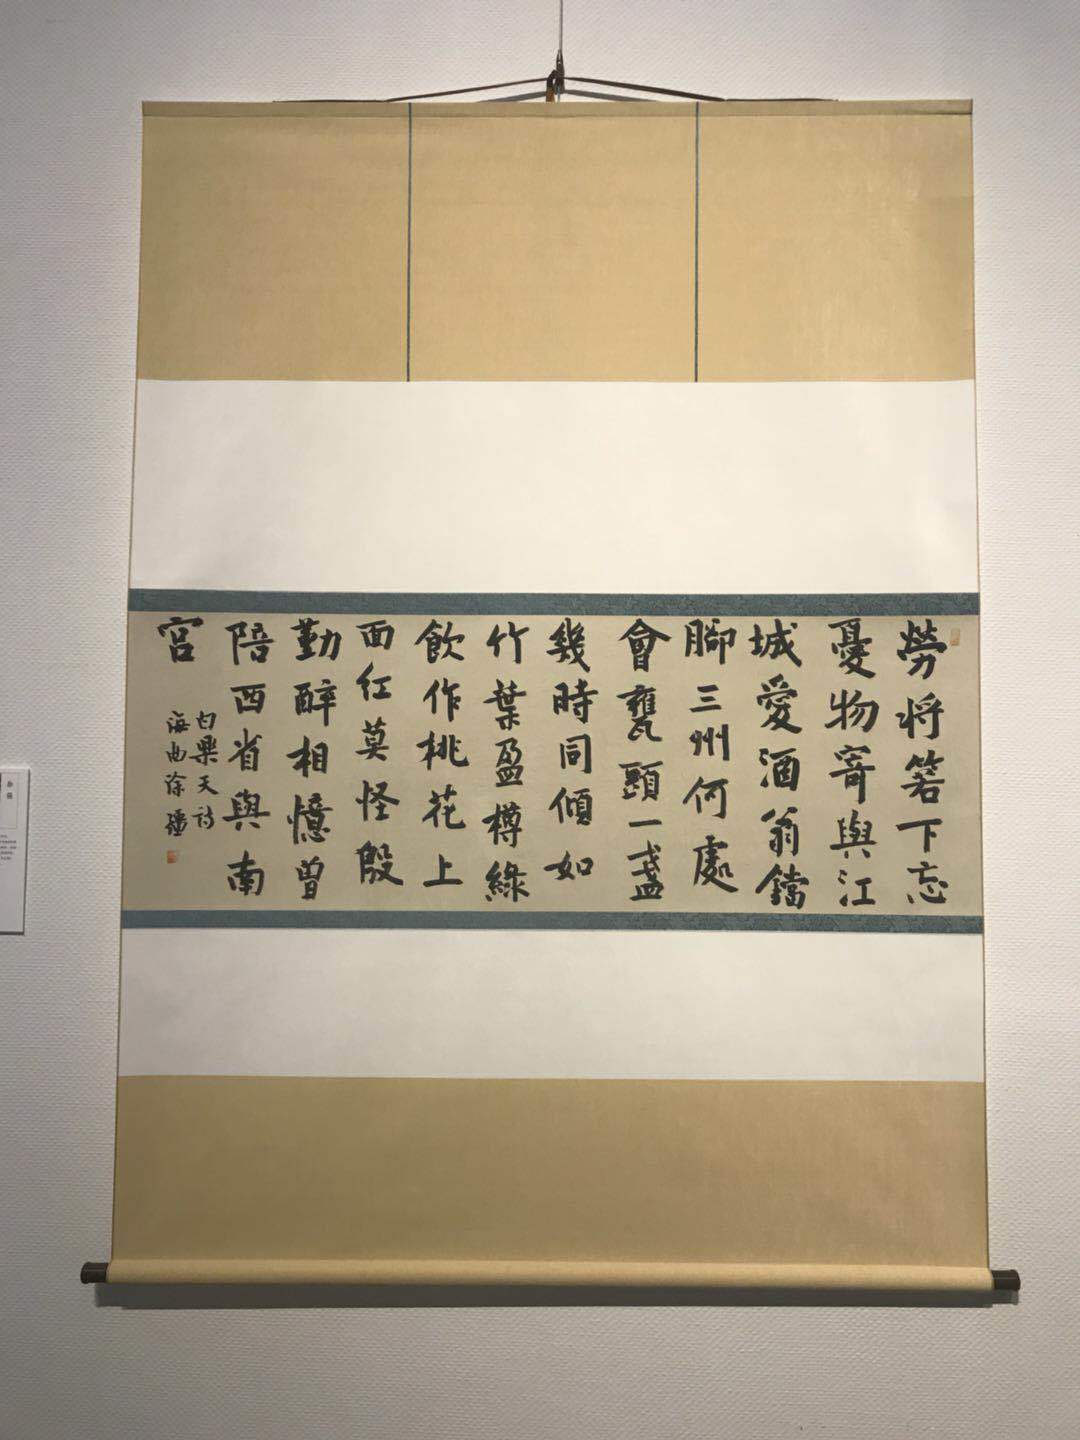 勞将箬下忘
憂物寄與江
城愛酒翁鐺
腳三州何處
會甕頭一盞
幾時同傾如
竹葉盈樽綠
飲作桃花上
面紅莫怪殷
勤醉相憶曾
陪西省與南
宮
白樂天詩
海曲徐